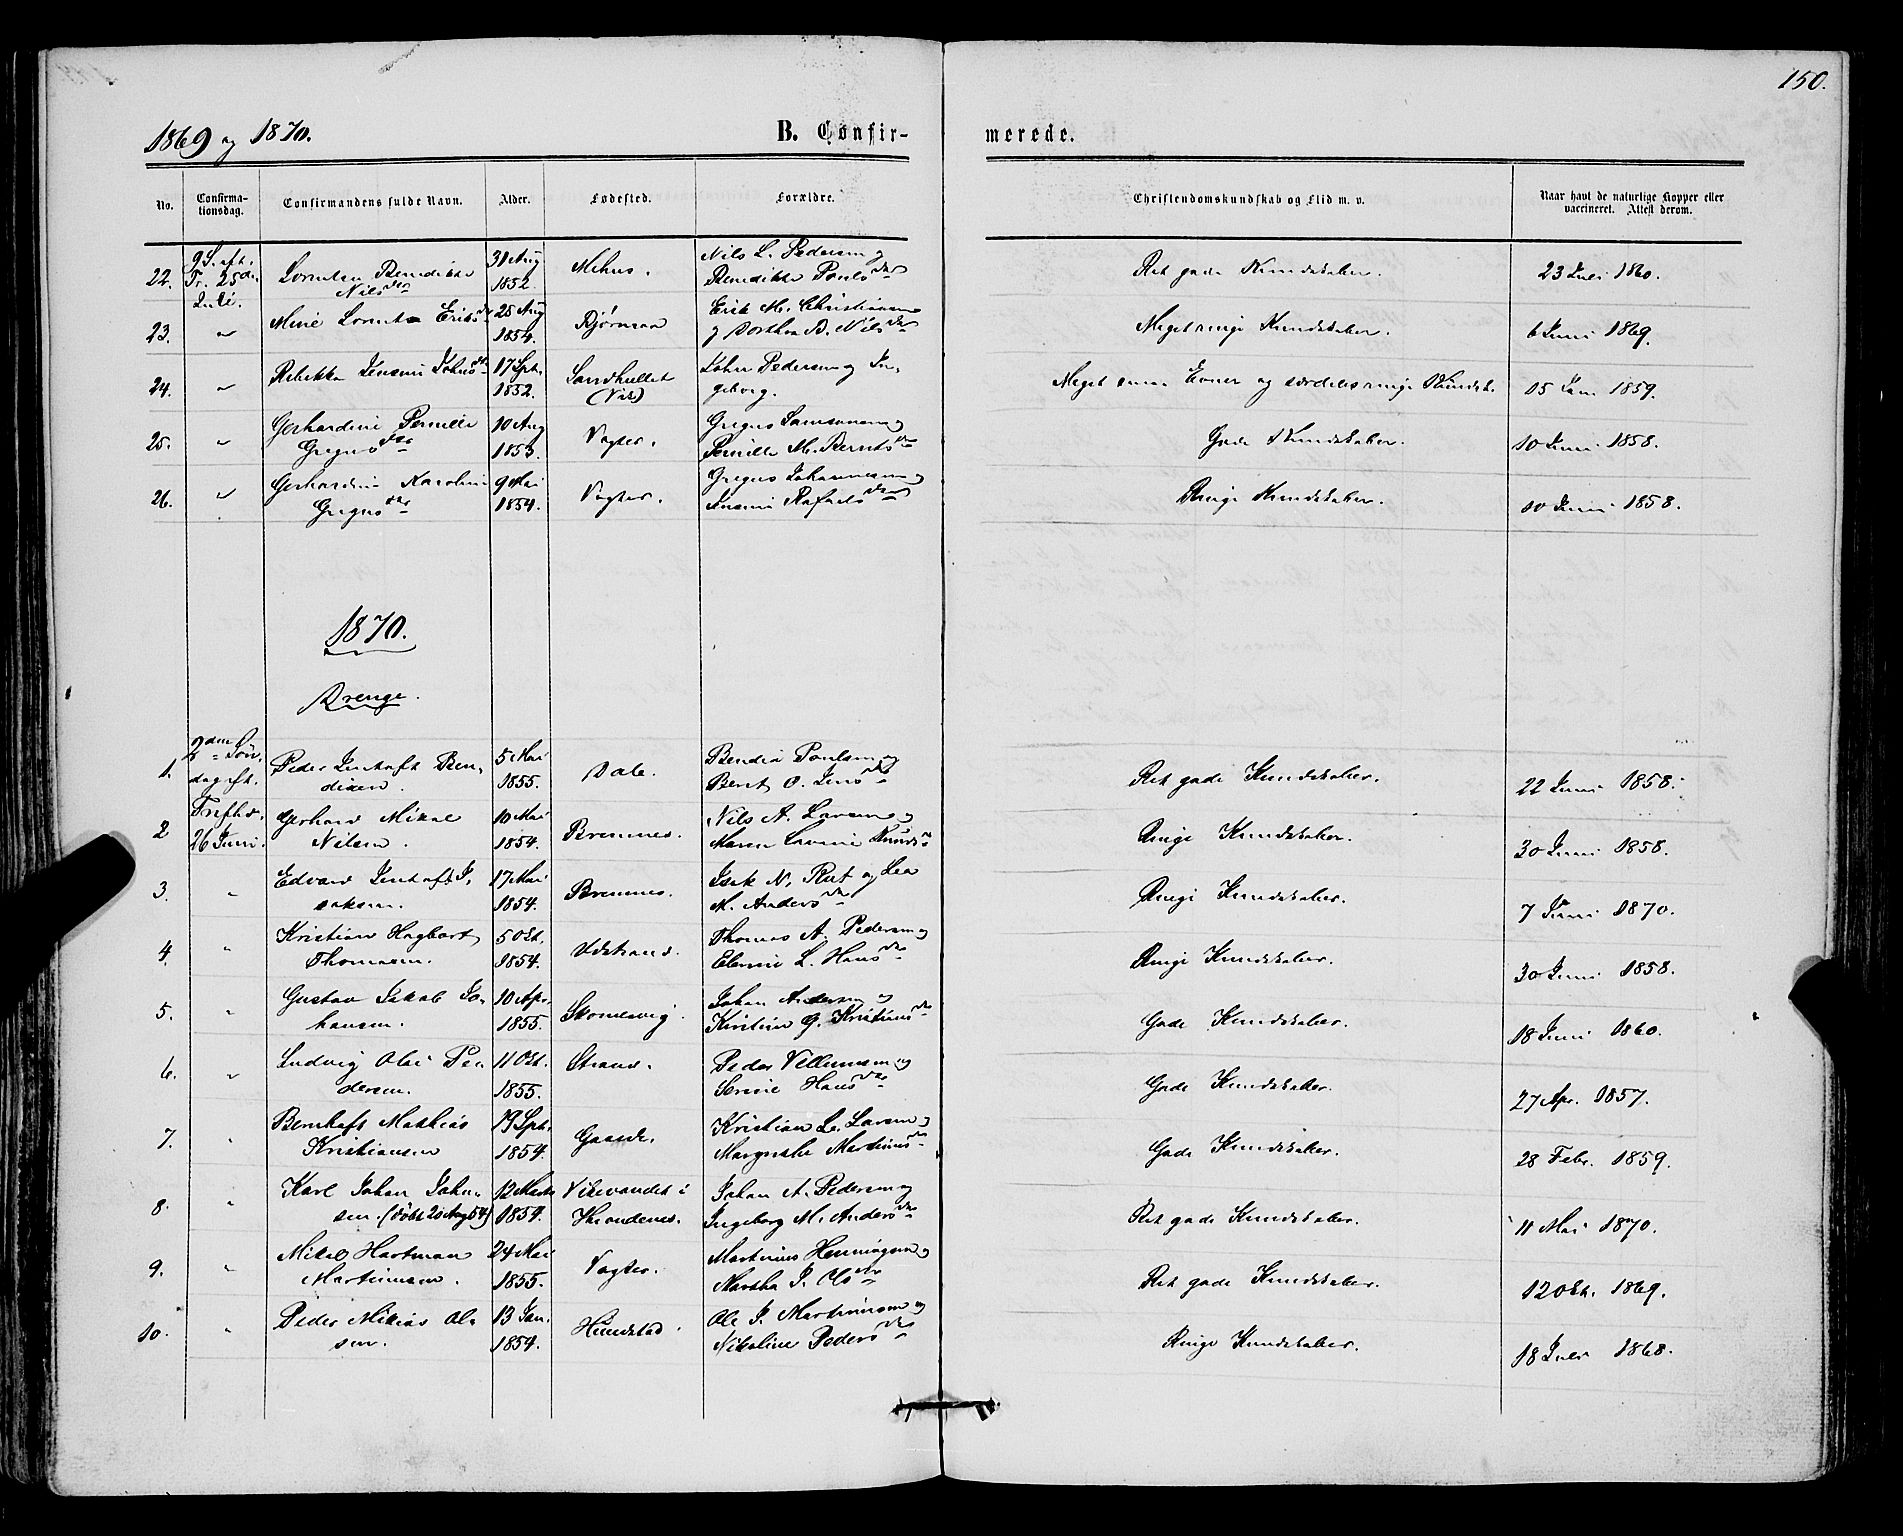 150.
1869 og 1870.
B. Confir-
merede.
No.
Confirma-
tionsdag.
Confirmandens fulde Navn.
Alder.
Fødested.
Forældre.
Christendomskundskab og Flid m. v.
Naar havt de naturlige Kopper eller
vaccineret. Attest derom.
22. 9 S. eft. Tr. 25de Juli. Lorentse Benedikte Nilsdtr 31 Aug 1852. Nils L. Pedersen og Benedikte Paulsdtr Ret gode Kundskaber. 23 Juli 1860.
23. " Mine Lorents Eriksdtr 25 Aug 1854. Bjørnaa Erik M. Christiansen og Dorthea B. Nilsdtr Meget ringe Kundskaber. 6 Juni 1869.
24. " Rebekka Jensine Johnsdtr 17 Sept. 1852. Sandhullet (Vik) John Pedersen og Ingeborg. Meget smaa Evner og særdeles ringe Kundsk. 15 Jan 1859.
25. " Gerhardine Pernille Gregusdtr 10 Aug 1853. Vagter. Gregus Samsonsen og Pernille M. Berntsdtr Gode Kundskaber. 10 Juni 1858.
26. " Gerhardine Karoline Gregusdtr 9 Mai 1854. Vagter. Gregus Johannesen og Rafaelsdtr Ringe Kundskaber. 10 Juni 1858.
1870.
Drenge.
1. 2den Søndag eft. Peder Benedixen. 5 Mai 1855. Dale. Paulsen og Berit O. Jensdtr Ret gode Kundskaber. 22 Juni 1858.
2 Trefhd. 26 Juni. Gerhard Mikal Nilsen. 10 Mai 1854. Bremnes. Nils A. Larsen og Maren Lavine Knudsdtr Ringe Kundskaber. 30 Juni 1858.
3. " Edvard Isaksen. 17 Mai 1854. Bremnes. Isak N. og Lea M. Andersdtr Ringe Kundskaber. 7 Juni 1870.
4. " Kristian Hagbart Thomasen. 5 Okt. 1854. Udstrand. Thomas A. Pedersen og Elenie L. Hansdtr Ringe Kundskaber. 30 Juni 1858.
5. " Gustav Jakob Johansen. 10 Apr. 1855. Johan Andersen og Kirstine G. Kristiansdtr Gode Kundskaber. 18 Juni 1860.
6. " Ludvig Olai Pedersen. 11 Okt. 1855. Strand. Peder Villumsen og Serine Hansdtr Gode Kundskaber. 27 Apr. 1857.
7. " Bernhoft Mathias Kristiansen 19 Spt. 1854. Gaasde. Kristian L. Larsen og Margrethe Martinusdtr Gode Kundskaber. 28 Febr. 1859.
8. " Karl Johan Johansen. (døbt 20 Aug 54) 12 Marts 1854. Vikevandet i Johan A. Pedersen og Ingeborg M. Andersdtr Ret gode Kundskaber. 11 Mai 1870.
9. " Mikal Hartman Martinusen. 24 Mai 1855. Vagter. Martinus Henningsen og Martha J. Olsdtr Ret gode Kundskaber. 12 Okt. 1869.
10. " Peder Mikias Olsen. 13 Jan. 1854. Hundstad. Ole J. Martinusen og Nikoline Pedersdtr Ringe Kundskaber. 18 Juli 1868.